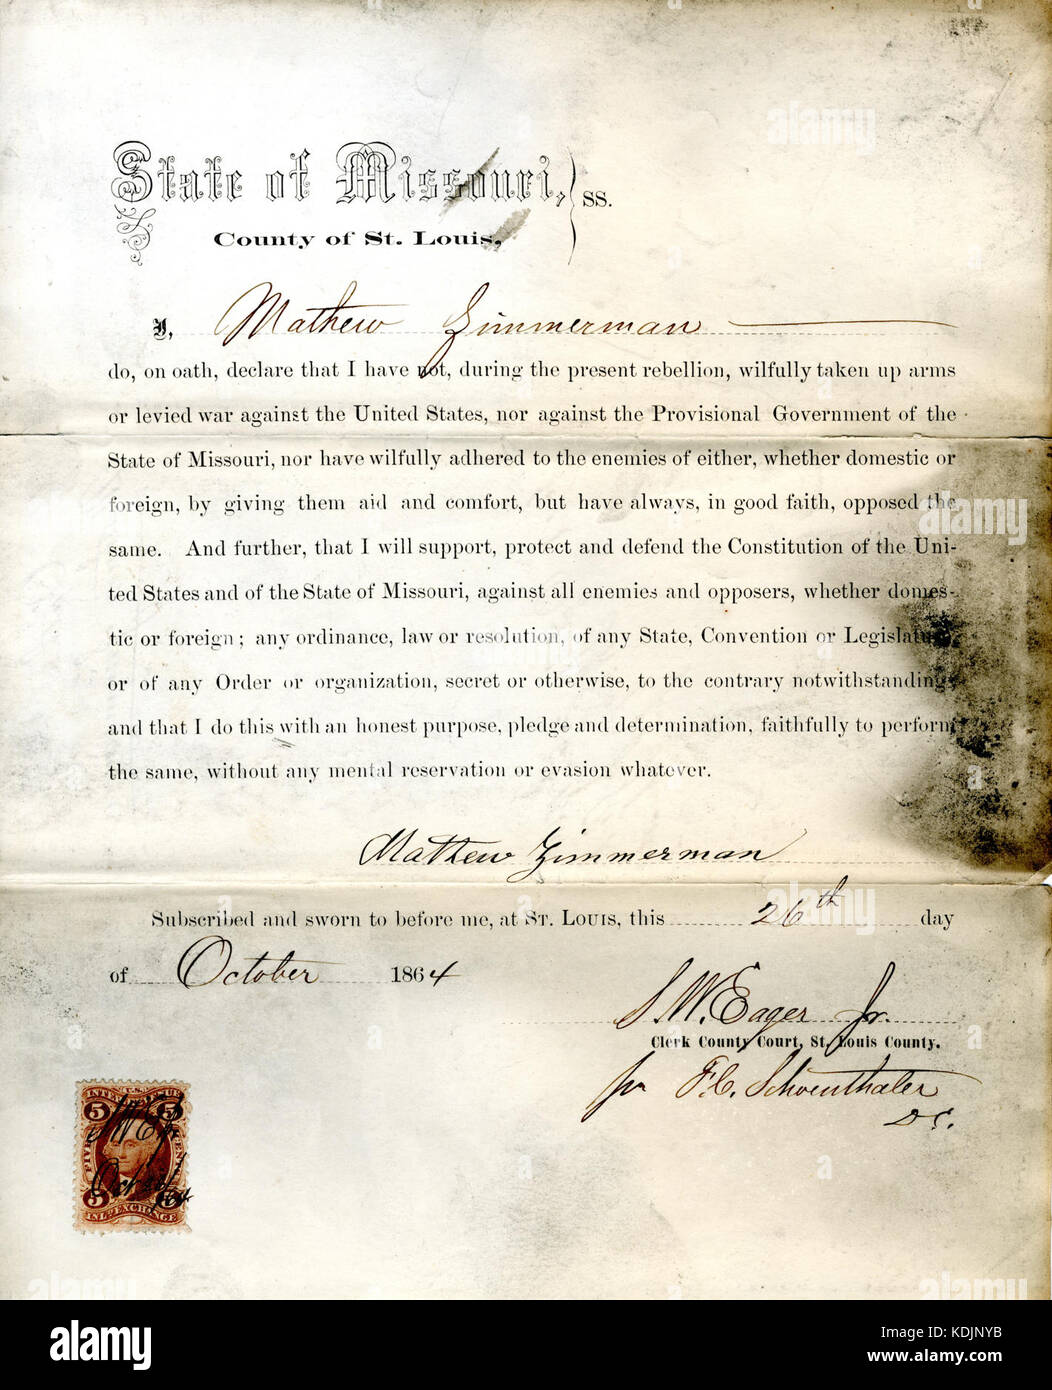 State of Missouri, } SS.
County of St. Louis,
I, Mathew Zimmerman
do, on oath, declare that I have not, during the present rebellion, wilfully taken up arms
or levied war against the United States, nor against the Provisional Government of the
State of Missouri, nor have wilfully adhered to the enemies of either, whether domestic or
foreign, by giving them aid and comfort, but have always, in good faith, opposed the
same. And further, that I will support, protect and defend the Constitution of the Uni-
ted States and of the State of Missouri, against all enemies and opposers, whether domes-
tic or foreign; any ordinance, law or resolution, of any State, Convention or Legislature,
or of any Order or organization, secret or otherwise, to the contrary notwithstanding;
and that I do this with an honest purpose, pledge and determination, faithfully to perform
the same, without any mental reservation or evasion whatever.
Mathew Zimmerman
Subscribed and sworn to before me, at St. Louis, this 26th day
of October 1864
S. W. Eager Jr.
Clerk County Court, St. Louis County.
pr F. C. Schoenthaler
D C.
INTER U.S. REVENUE
5 5
S W E Jr
FIVE CENTS
Oct 26
1864
5 5
INL. EXCHANGE
alamy
Image ID: KDJNYB
www.alamy.com